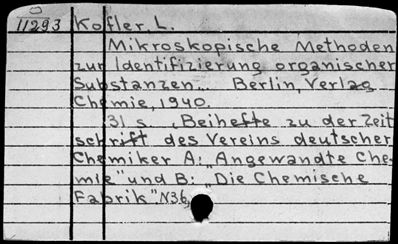 11293 Kofler, L.
Mikroskopische Methoden
zur Identifizierung organischer
Substanzen... Berlin, Verlag
Chemie, 1940.
31 s. „Beihefte zu der Zeit
schrift des Vereins deutscher
Chemiker A: „Angewandte Che-
mie" und B: „Die Chemische
Fabrik". N36,